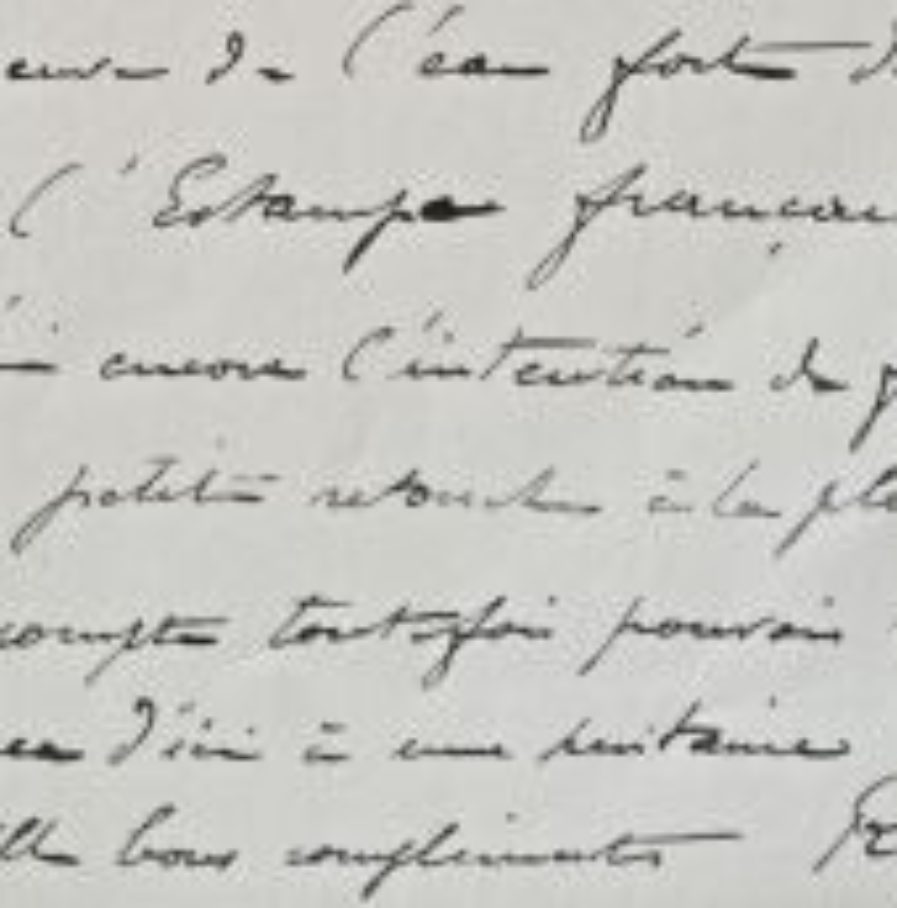 de l'eau forte
l'Estampe français
encore l'intention de
petite retouche à la pla
compte toutefois pouvoir
d'ici à une huitaine
bons compliments